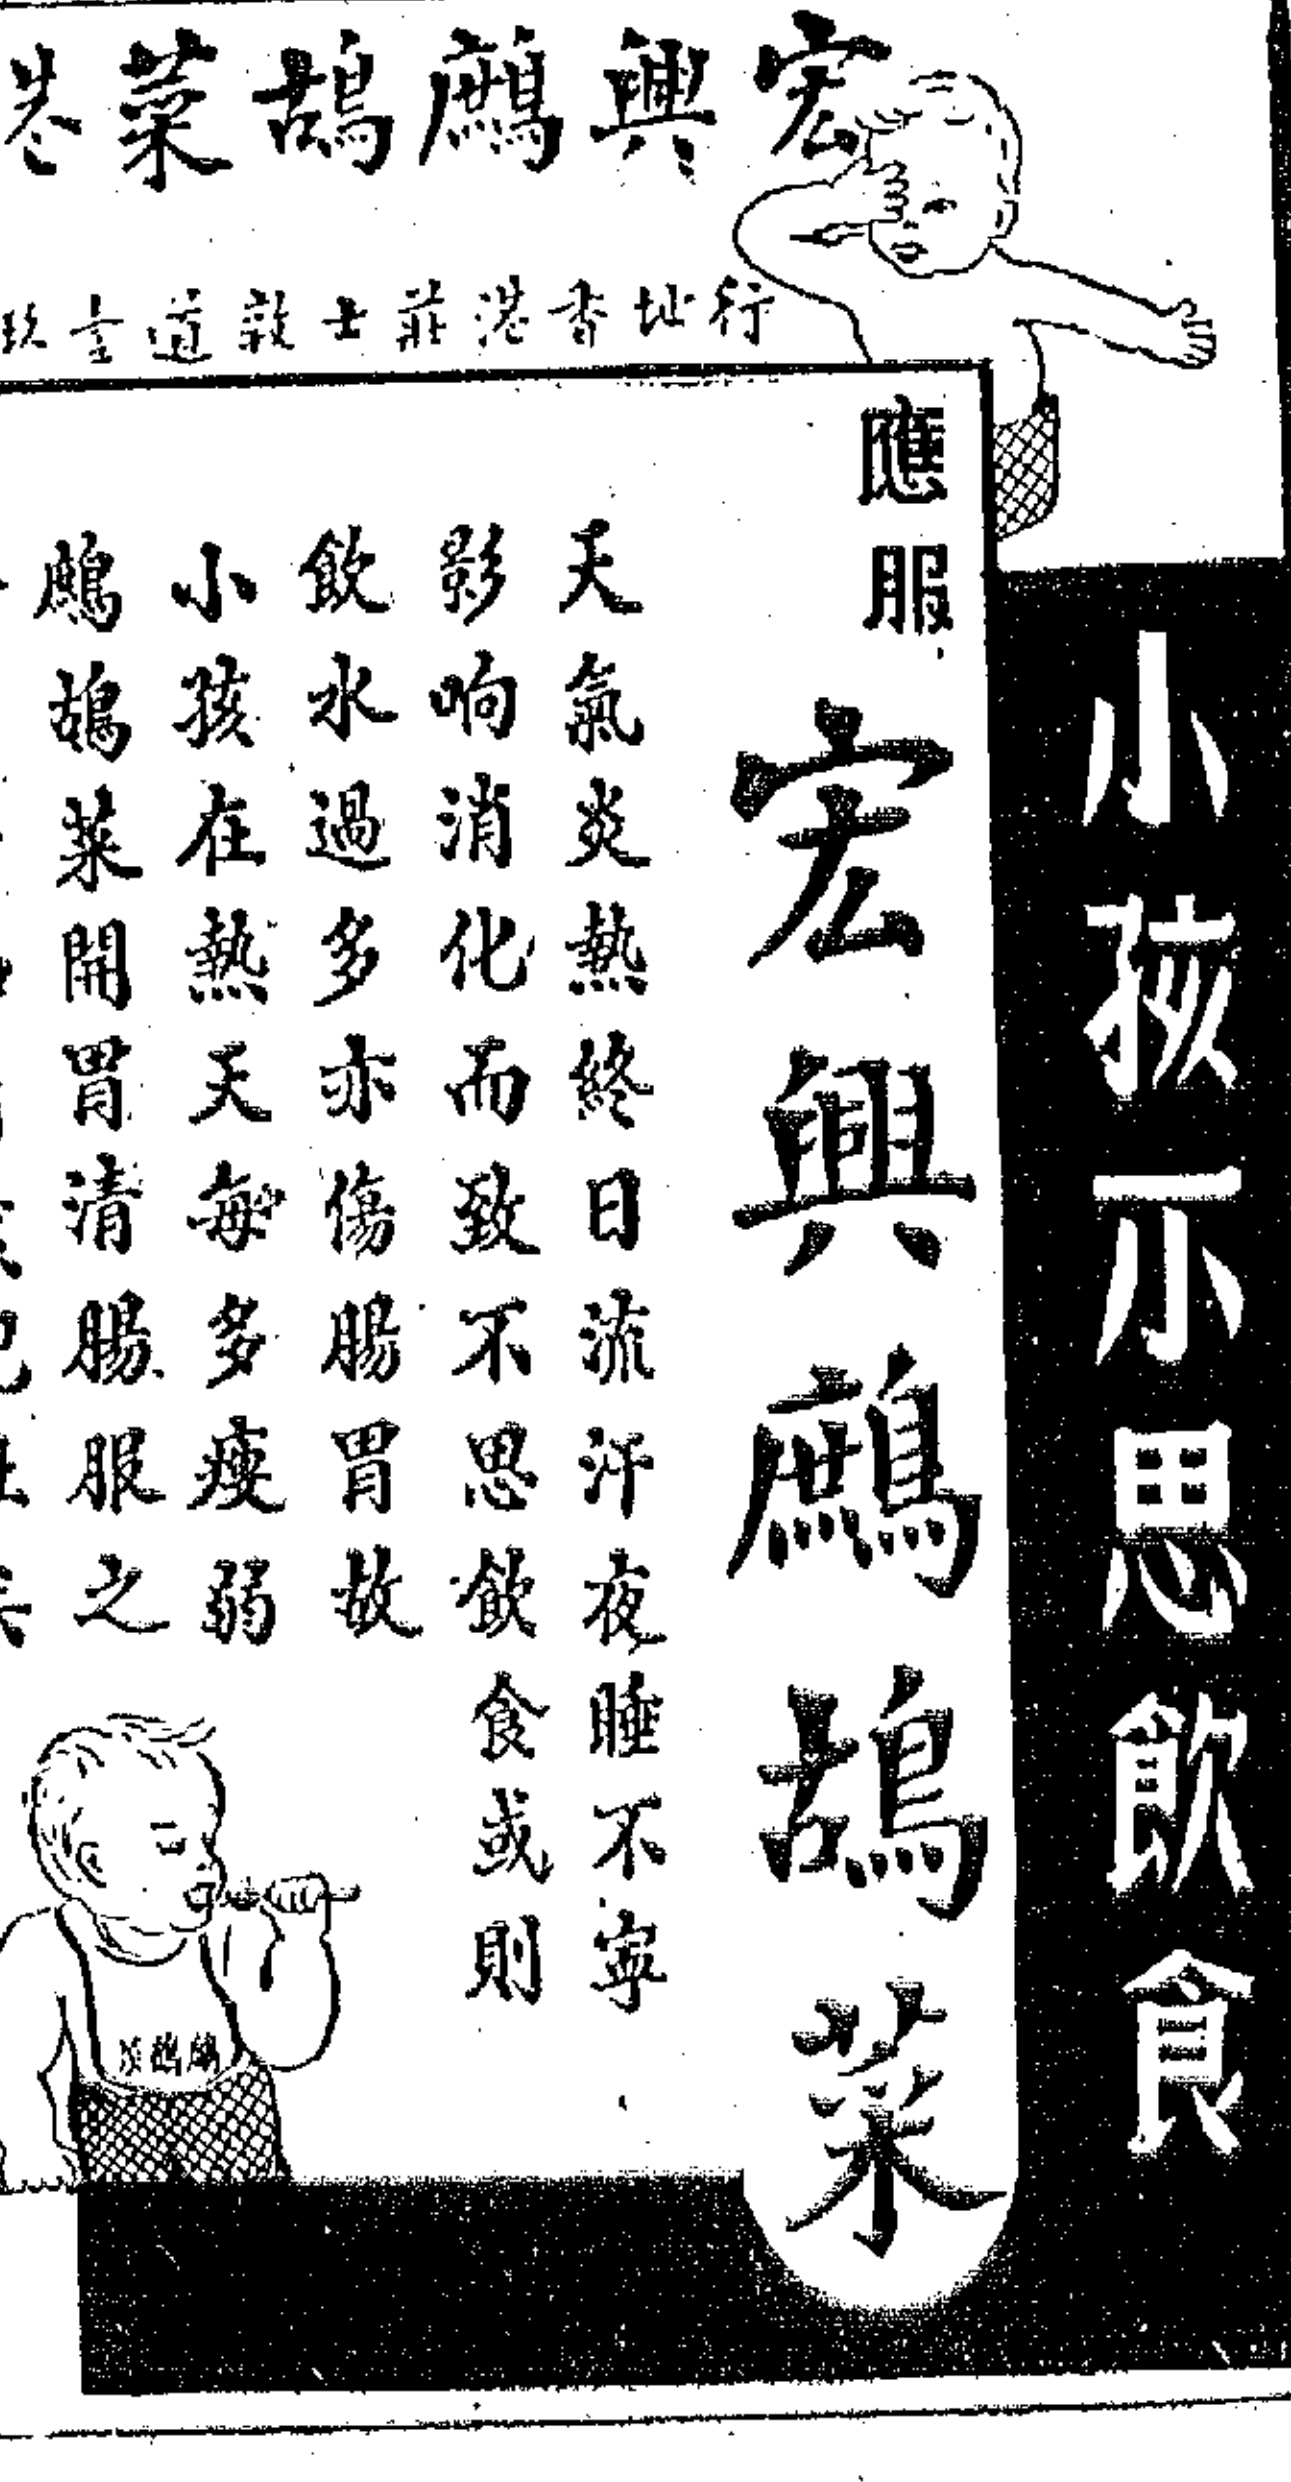 宏興鷓鴣菜
行址香港莊士敦道壹玖
小孩不思飲食
應服
宏興鷓鴣菜
天氣炎熱終日流汗夜睡不寧
影响消化而致不思飲食或則
飲水過多亦傷腸胃故
小孩在熱天每多瘦弱
鷓鴣菜開胃清腸服之
鷓鴣菜